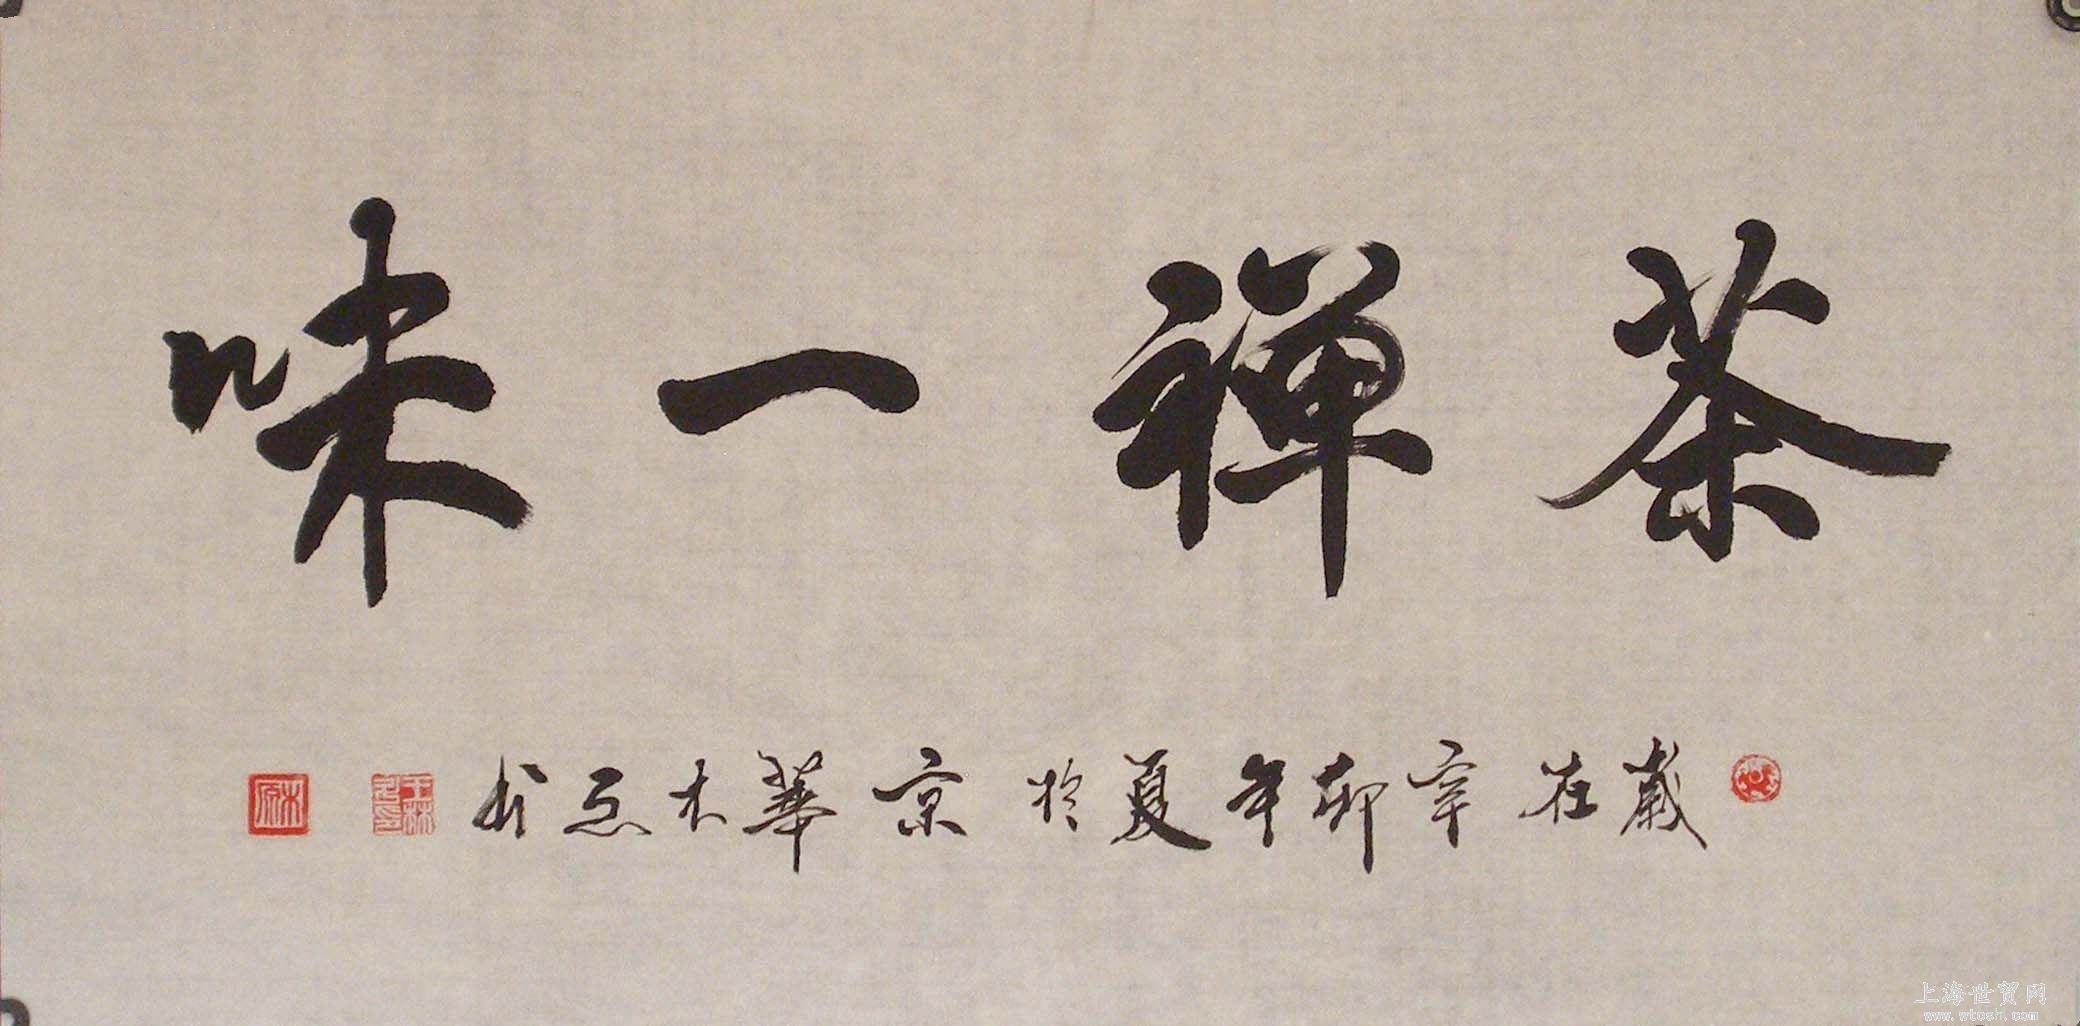 茶禅一味
岁在辛卯年夏於京华木
上海世贸网
www.wtosh.com